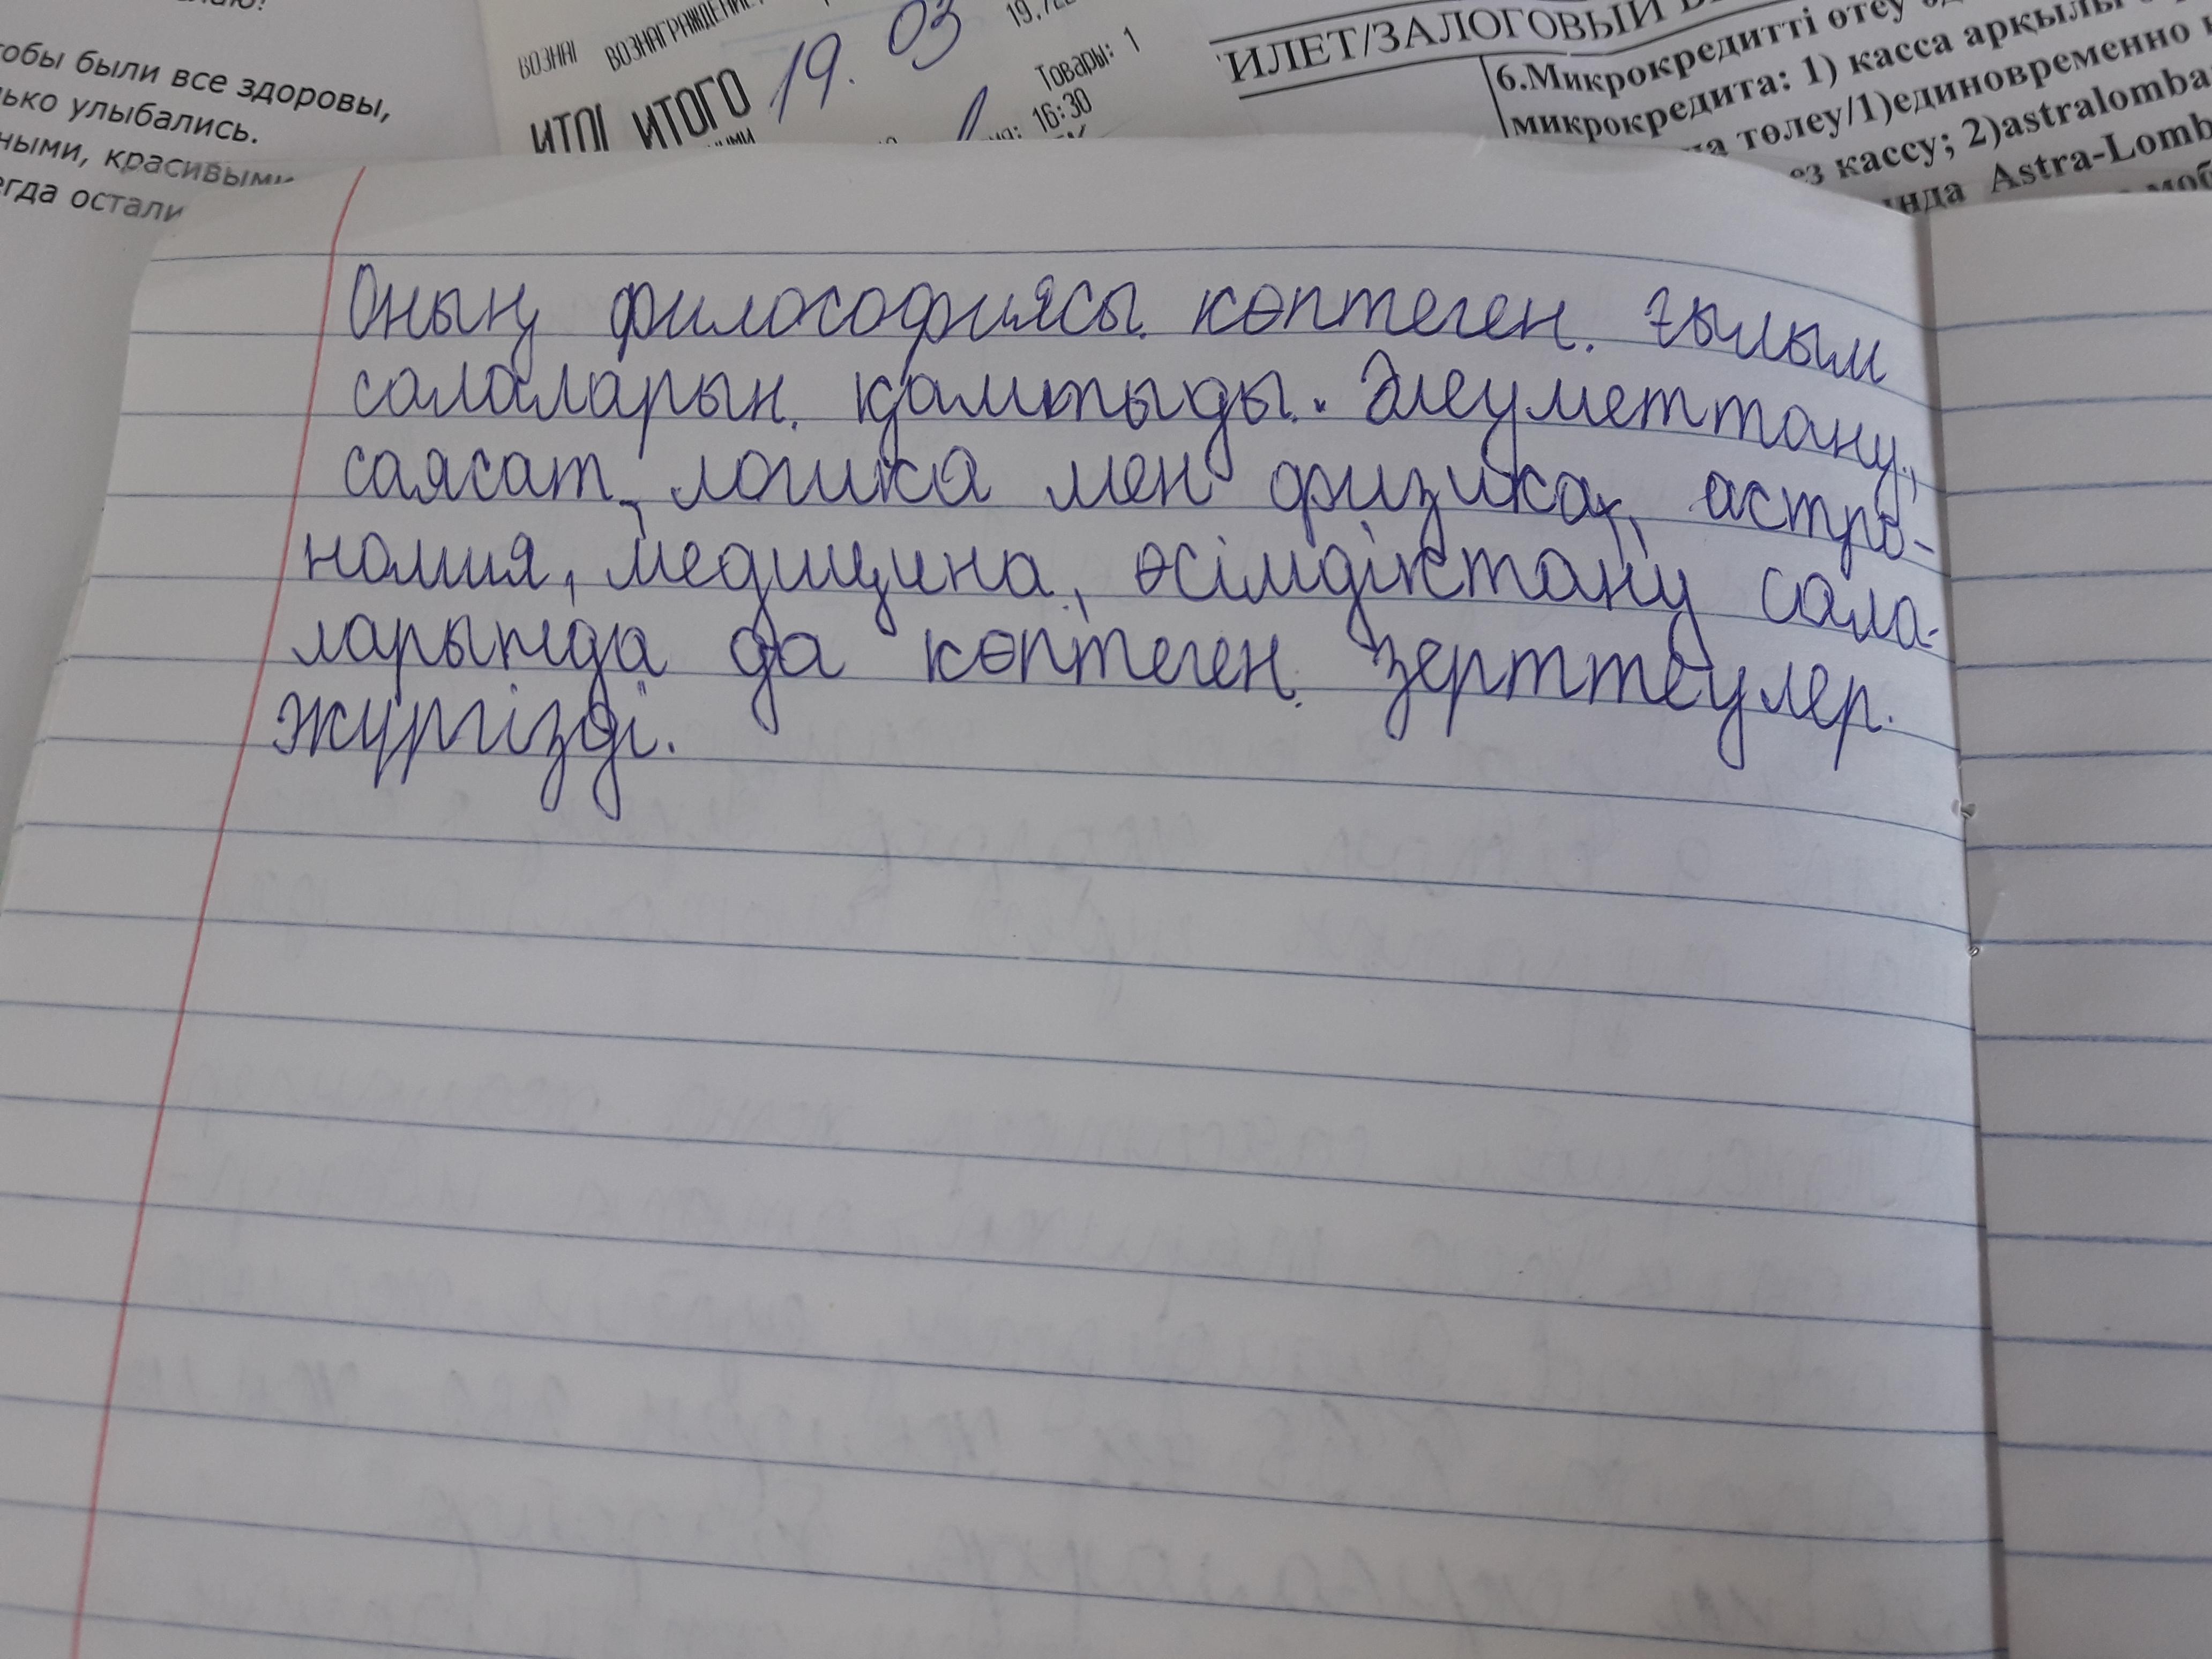 обы были все здоровы,
ько улыбались.
ными, красивыми
егда остали
ВОЗНАГРАЖДЕНИЕ
ИТОГО
19.03
Товары: 1
16:30
ИЛЕТ/ЗАЛОГОВЫЙ
6.Микрокредитті өтеу
микрокредита: 1) касса арқылы
төлеу/1)единовременно
ез кассу; 2)astralomba
нда Astra-Lomb
моб
Оның философиясы көптеген ғылым
салаларын қамтыды. Әлеуметтану,
саясат, логика мен физика, астро-
номия, медицина, өсімдіктану сала-
ларында да көптеген зерттеулер
жүргізді.